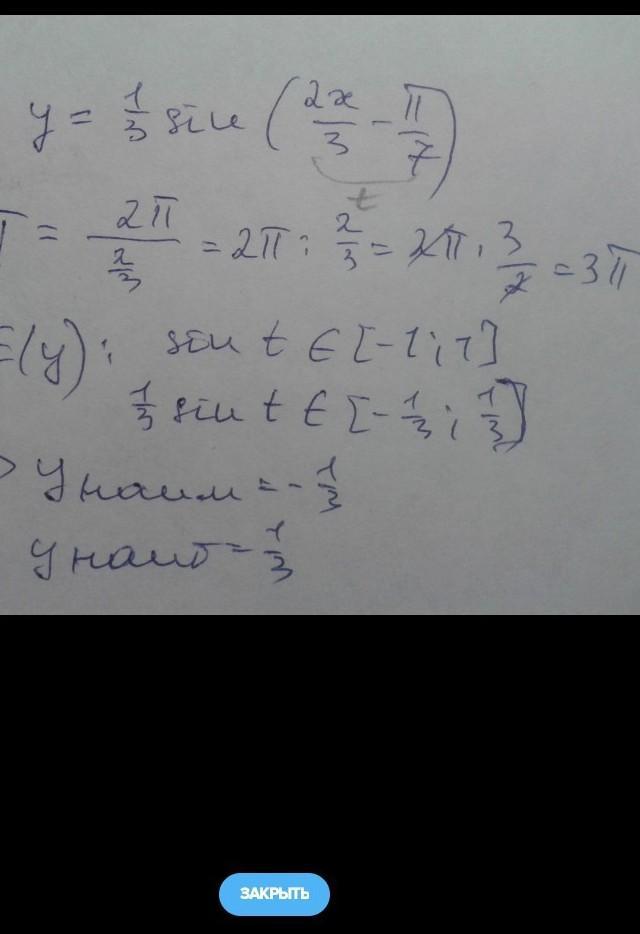 y = 1/3 sin (2x/3 - π/7)
t
T = 2π/(2/3) = 2π : 2/3 = 2π · 3/2 = 3π
E(y): sin t ∈ [-1; 1]
1/3 sin t ∈ [-1/3; 1/3]
> y наим = -1/3
y наиб = 1/3
ЗАКРЫТЬ